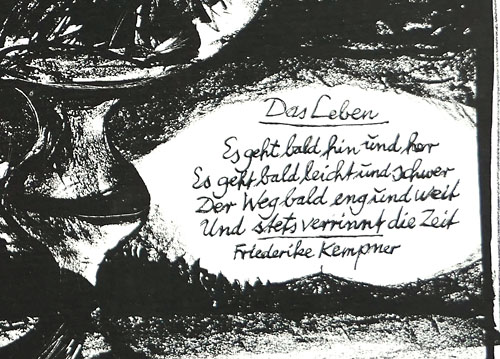 Das Leben
Es geht bald hin und her
Es geht bald leicht und schwer
Der Weg bald eng und weit
Und stets verrinnt die Zeit
Friederike Kempner